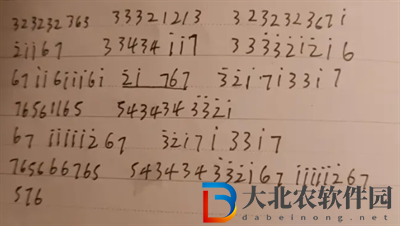 323232 763 33321213 323232367i̇
2̇i̇i̇67 33434 i̇i̇7 333̇3̇2̇i̇2̇i̇6
67i̇i̇6i̇i̇i̇6i̇ 2̇i̇ 767 3̇2̇i̇7i̇33i̇7
76561165 5434343̇3̇2̇i̇
67 i̇i̇i̇i̇i̇2̇67 3̇2̇i̇7i̇ 33i̇7
765666765 5434343̇3̇2̇i̇67 i̇i̇i̇i̇i̇2̇67
576
大北农软件园
dabeinong.net